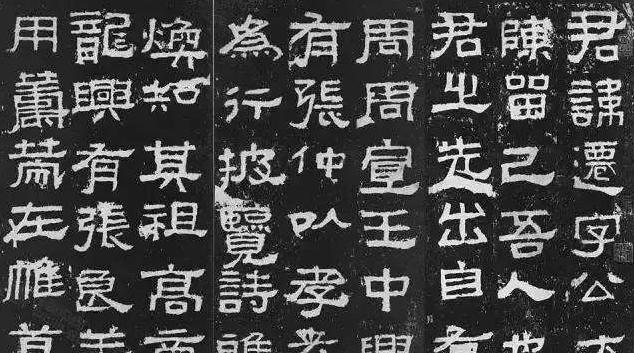 君諱遷字公
陳留己吾人
君之先出自
周周宣王中
有張仲以孝
為行披覽詩
煥知其祖高
龍興有張良
用籌策在帷